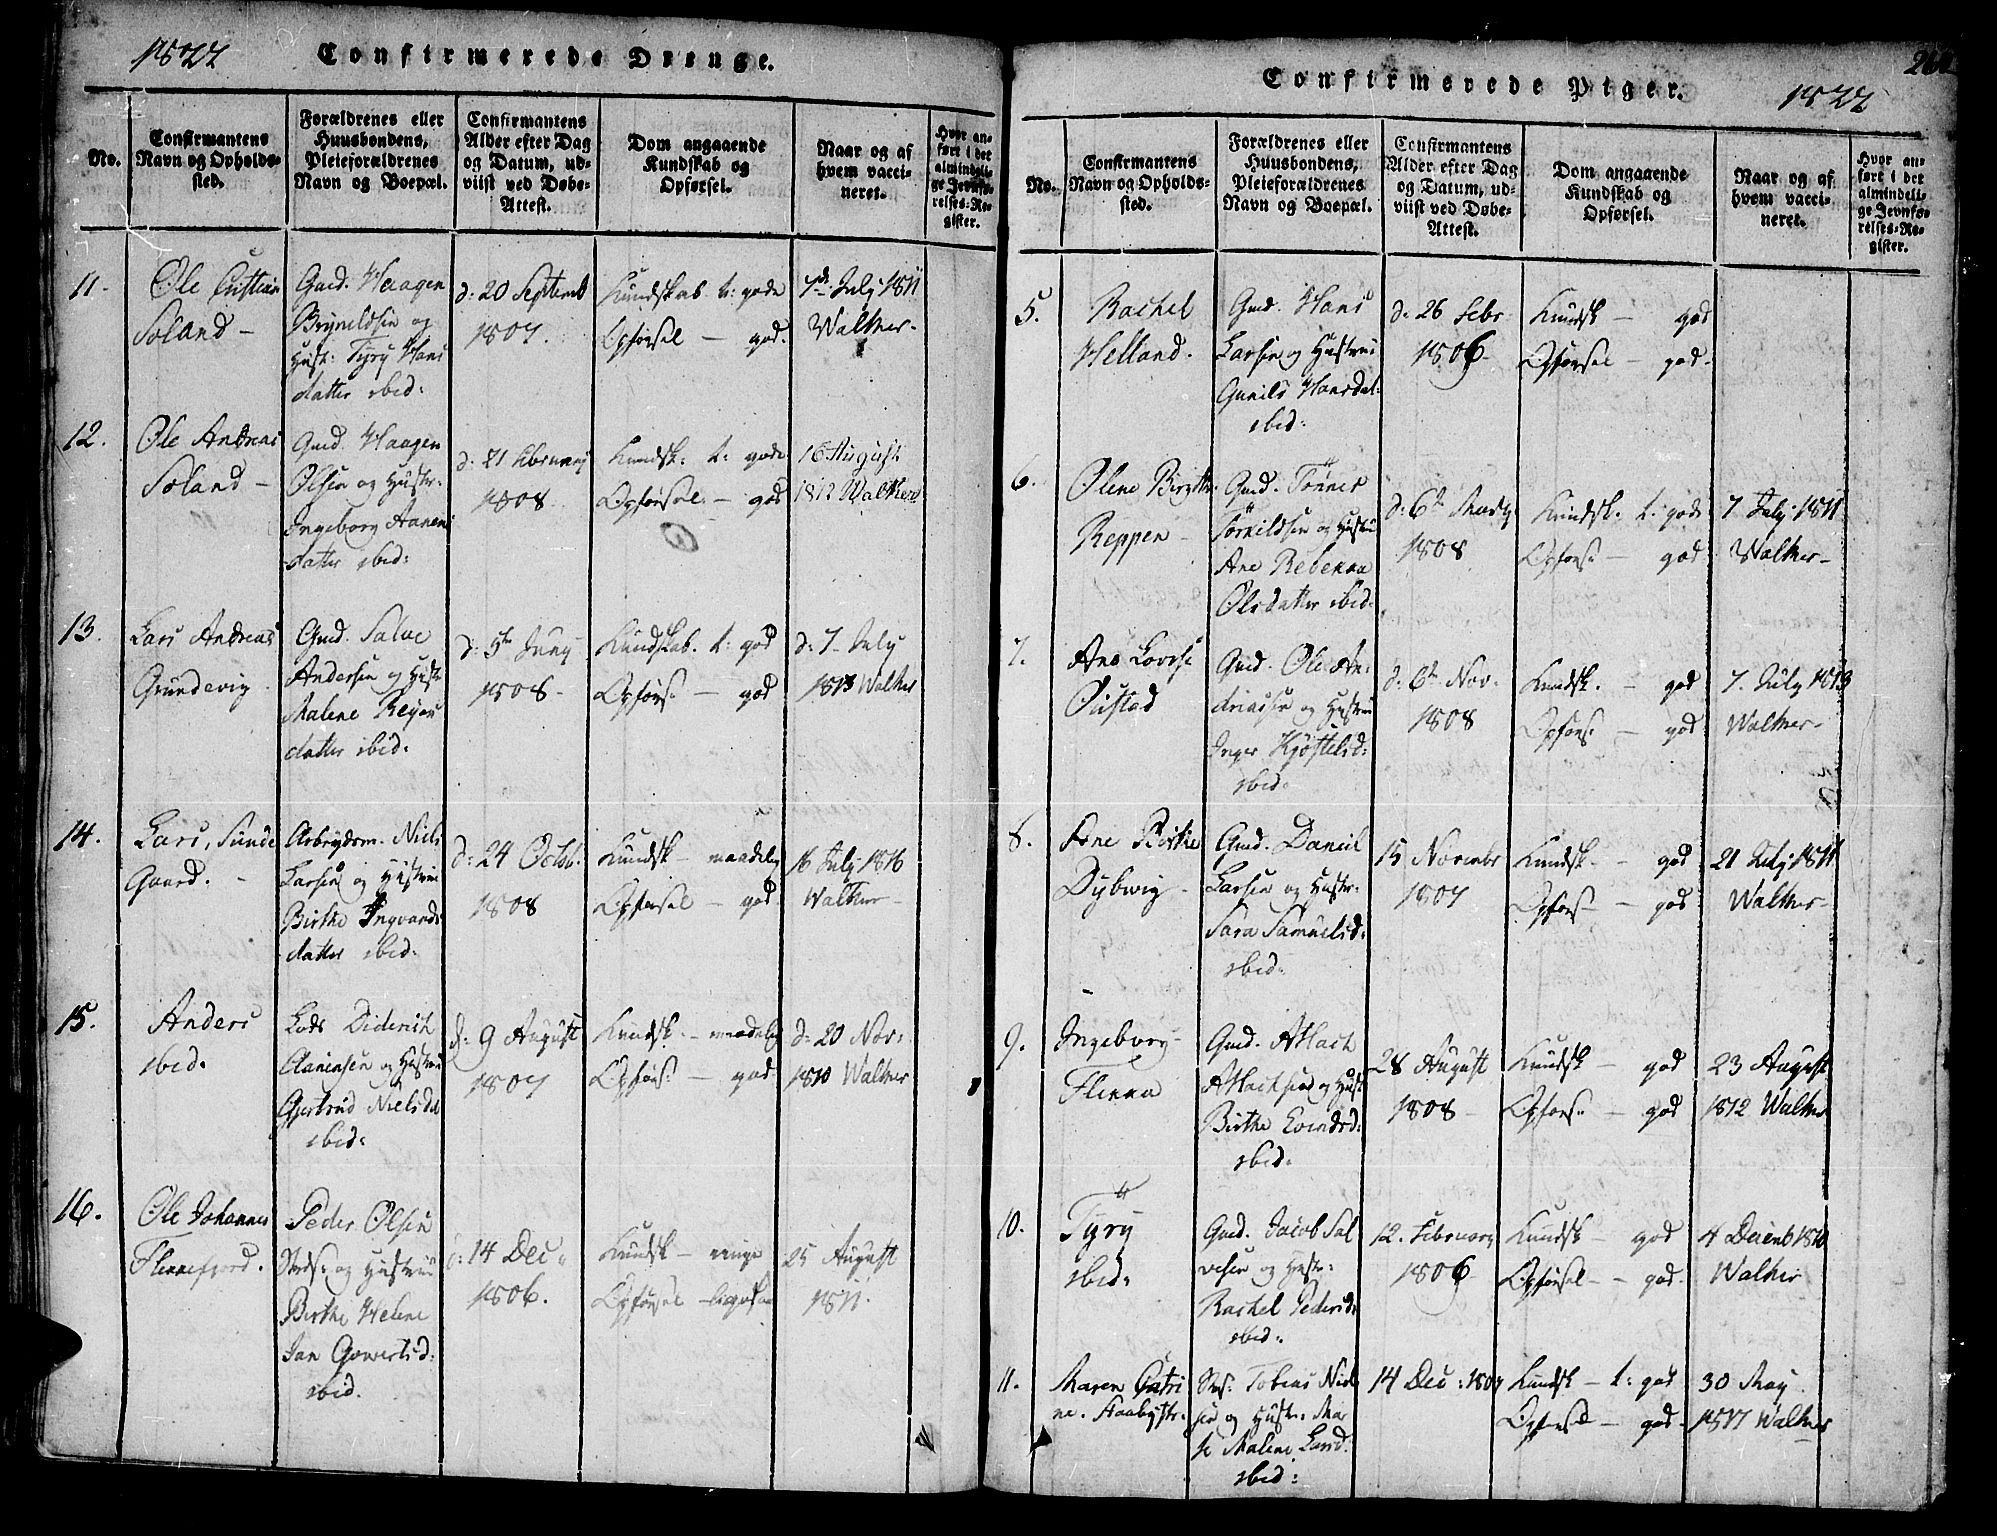 1822 Confirmerede Drenge.
No.
Confirmantens
Navn og Opholds-
sted.
Forældrenes eller
Huusbondens,
Pleieforældrenes
Navn og Boepæl.
Confirmantens
Alder efter Dag
og Datum, ud-
viist ved Døbe-
Attest.
Dom angaaende
Kundskab og
Opførsel.
Naar og af
hvem vacci-
neret.
Hvor an-
ført i det
almindeli-
ge Jevnfø-
relses-Re-
gister.
11.
Ole Cristian
Soland -
Gmd. Haagen
Bryneldsen og
Hust: Tyry Hans
datter ibid:
d: 20 Septemb
1807.
Kundskab t: gode
Opførsel - god.
7de July 1811
Walther-
12.
Ole Andreas
Soland -
Gmd. Haagen
Olsen og Hustr:
Ingeborg Aanen
datter ibid:
d: 21 February
1808
Kundsk: t: gode
Opførsel - god
16 August
1812 Walther
13.
Lars Andreas
Grundevig
Gmd. Salve
Andersen og Hustr
Malene Reyer
datter ibid:
d: 5te Juny
1808-
Kundskab. t: god
Opførs: - god
d: 7 July
1813 Walther
14.
Lars, Sunde
Gaard. -
Arbeydsm. Niels
Larsen og Hustrue
Birthe Ingvands
datter ibid:
d: 24 Octob.
1808
Kundsk - maadelig
Opførsel - god
16 July 1816
Walther-
15.
Anders
ibid.
Lods Diderich
Claussen og Hustru
Gjertrud Nielsd
ibid:
d: 9 August
1807
Kundsk - maadelig
Opførs: - god
d: 20 Nov:
1810 Walther
16.
Ole Johannes
Flikkefjord.
Peder Olsen
og Hustrue
Birthe Helene
Jan Gowertsd:
ibid.
d: 14 Dec:
1806.
Kundsk - ringe
Opførsel ligesaa
25 August
1811.
Confirmerede Piger. 1822
No.
Confirmantens
Navn og Opholds-
sted.
Forældrenes eller
Huusbondens,
Pleieforældrenes
Navn og Boepæl.
Confirmantens
Alder efter Dag
og Datum, ud-
viist ved Døbe-
Attest.
Dom angaaende
Kundskab og
Opførsel.
Naar og af
hvem vacci-
neret.
Hvor an-
ført i det
almindeli-
ge Jevnfø-
relses-Re-
gister.
5.
Rachel
Helland.
Gmd. Hans
Larsen og Hustrue
Gunild Hansdat:
ibid:
d: 26 Febr
1806-
Kundsk - god
Opførsel - god-
6.
Olene Birgitte
Reppen -
Gmd. Tønnes
Tørkildsen og Hustru
Ane Rebekka
Olsdatter ibid:
d: 6te Marty
1808
Kundsk. t: gode
Opførs: - god
7 July 1811
Walther-
7.
Ane Lovise
Olistad
Gmd. Ole An-
driassen og Hustrue
Inger Kjøstelsd:
ibid:
d: 6te Nov.
1808
Kundsk. - god
Opførs: - god
7. July 1813
Walther-
8.
Ane Birthe
Dybwig -
Gmd. Daniel
Larsen og Hustr:
Sara Samuelsd:
ibid:
15 Novembr
1807
Kundsk. - god
Opførs - god
21 July 1811
Walther-
9.
Ingeborg
Flikka
Gmd. Atlach
Atlachsen og Hust:
Birthe Evindsd:
ibid:
28 August
1808 -
Kundsk - god
Opførs: - god
23 August
1812 Walther
10.
Tyry
ibid:
Gmd. Jacob Sal
vesen og Hustr:
Rachel Pedersd:
ibid:
12. February
1806
Kundsk - god
Opførsel - god.
4 Decemb 1810
Walther
11.
Maren Catri
ne.
Tobias Niel
sen og Hustr: Mar
te Malene Larsd:
ibid:
14 Dec: 1807
Kundsk - t: god
Opførsel - god-
30 May
1817 Walther